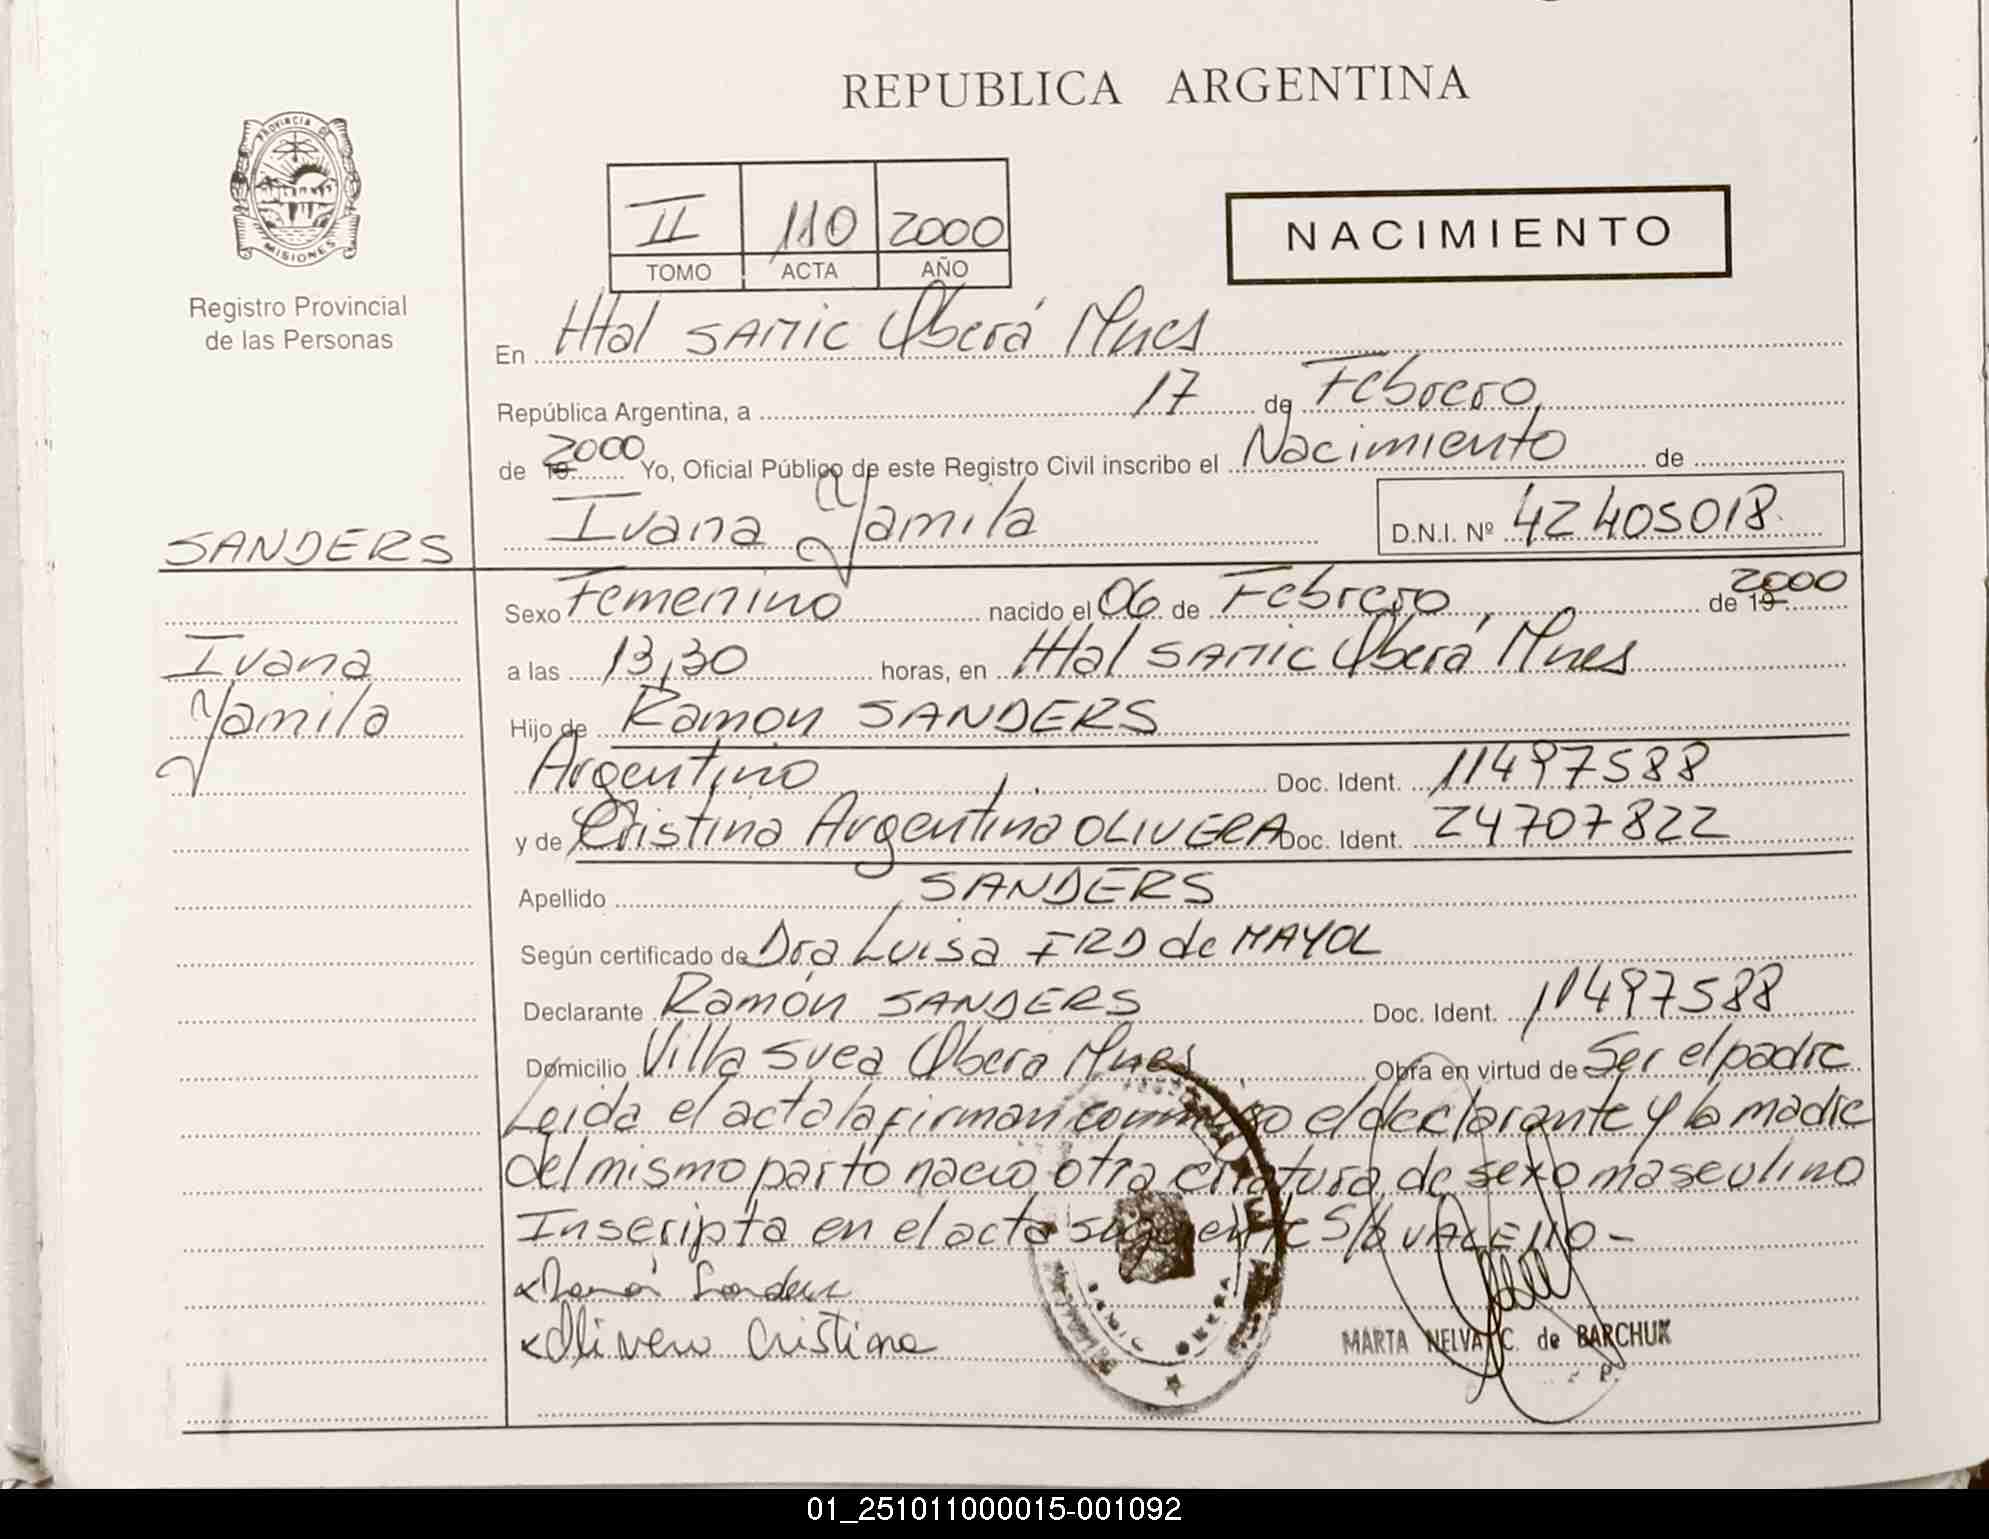 REPUBLICA ARGENTINA
PROVINCIA DE
MISIONES
Registro Provincial
de las Personas
II 110 2000
TOMO ACTA AÑO
NACIMIENTO
En Htal SAMIC Oberá Mnes
República Argentina, a 17 de Febrero
de 19 2000 Yo, Oficial Público de este Registro Civil inscribo el Nacimiento de
Ivana Yamila D.N.I. Nº 42405018
SANDERS
Ivana
Yamila
Sexo Femenino nacido el 06 de Febrero de 19 2000
a las 13,30 horas, en Htal SAMIC Oberá Mnes
Hijo de Ramon SANDERS
Argentino Doc. Ident. 11497588
y de Cristina Argentina OLIVERA Doc. Ident. 24707822
Apellido SANDERS
Según certificado de Dra Luisa IRD de MAYOL
Declarante Ramón SANDERS Doc. Ident. 11497588
Domicilio Villa Svea Obera Mnes Obra en virtud de Ser el padre
Leida el acta la firman conmigo el declarante y la madre
del mismo parto nacio otra criatura de sexo masculino
Inscripta en el acta siguiente S/b VALE 110 -
Ramón Sanders
Olivera Cristina
MARTA NELVA C. de BARCHUK
01_251011000015-001092